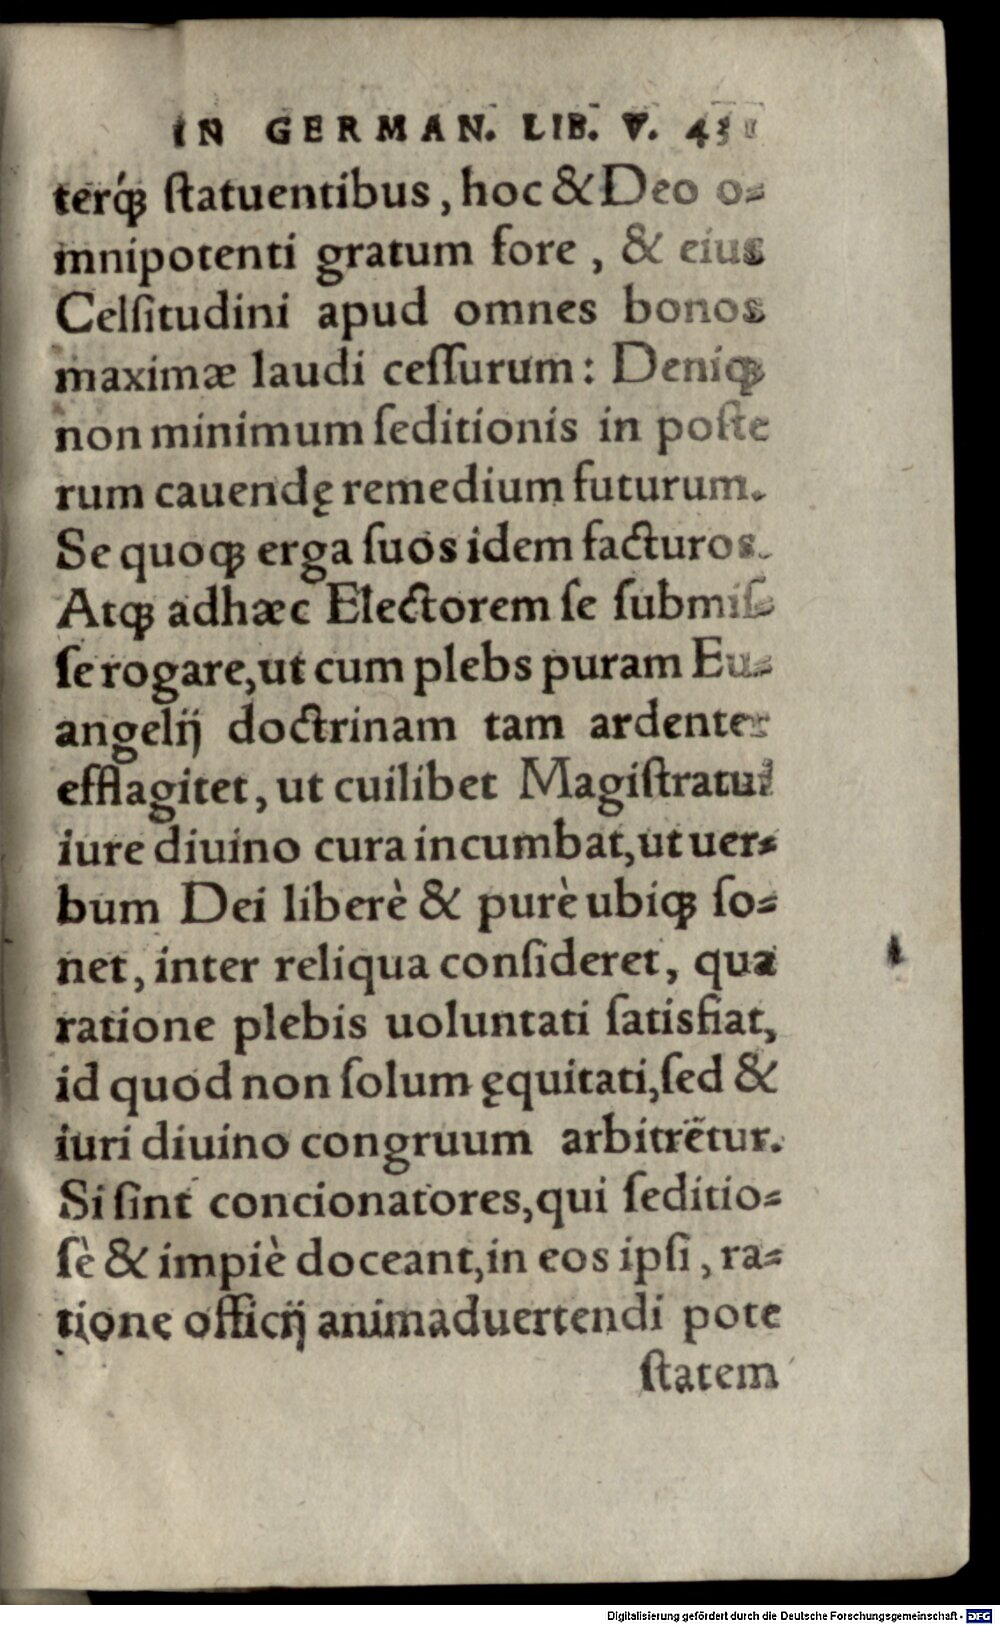 IN GERMAN. LIB. V.
terq́ꝫ ſtatuentibus, hoc & Deo o-
mnipotenti gratum fore, & eius
Celſitudini apud omnes bonos
maximæ laudi ceſſurum: Deniqꝫ
non minimum ſeditionis in poſte
rum cauendę remedium futurum.
Se quoqꝫ erga ſuos idem facturos.
Atqꝫ adhæc Electorem ſe ſubmiſ-
ſe rogare, ut cum plebs puram Eu-
angelij doctrinam tam ardenter
efflagitet, ut cuilibet Magiſtratui
iure diuino cura incumbat, ut uer-
bum Dei liberè & purè ubiqꝫ ſo-
net, inter reliqua conſideret, qua
ratione plebis uoluntati ſatisfiat,
id quod non ſolum ęquitati, ſed &
iuri diuino congruum arbitrẽtur.
Si ſint concionatores, qui ſeditio-
ſè & impiè doceant, in eos ipſi, ra-
tione officij animaduertendi pote
ſtatem
Digitalisierung gefördert durch die Deutsche Forschungsgemeinschaft - DFG